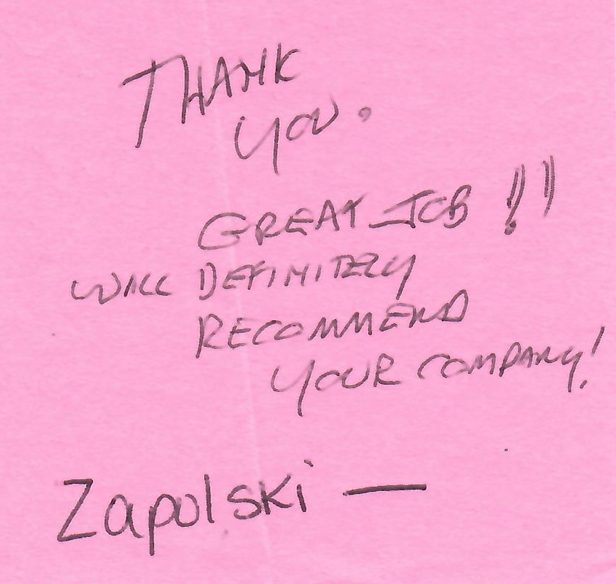 THANK
YOU.
GREAT JOB !!
WILL DEFINITELY
RECOMMEND
YOUR COMPANY!
Zapolski —